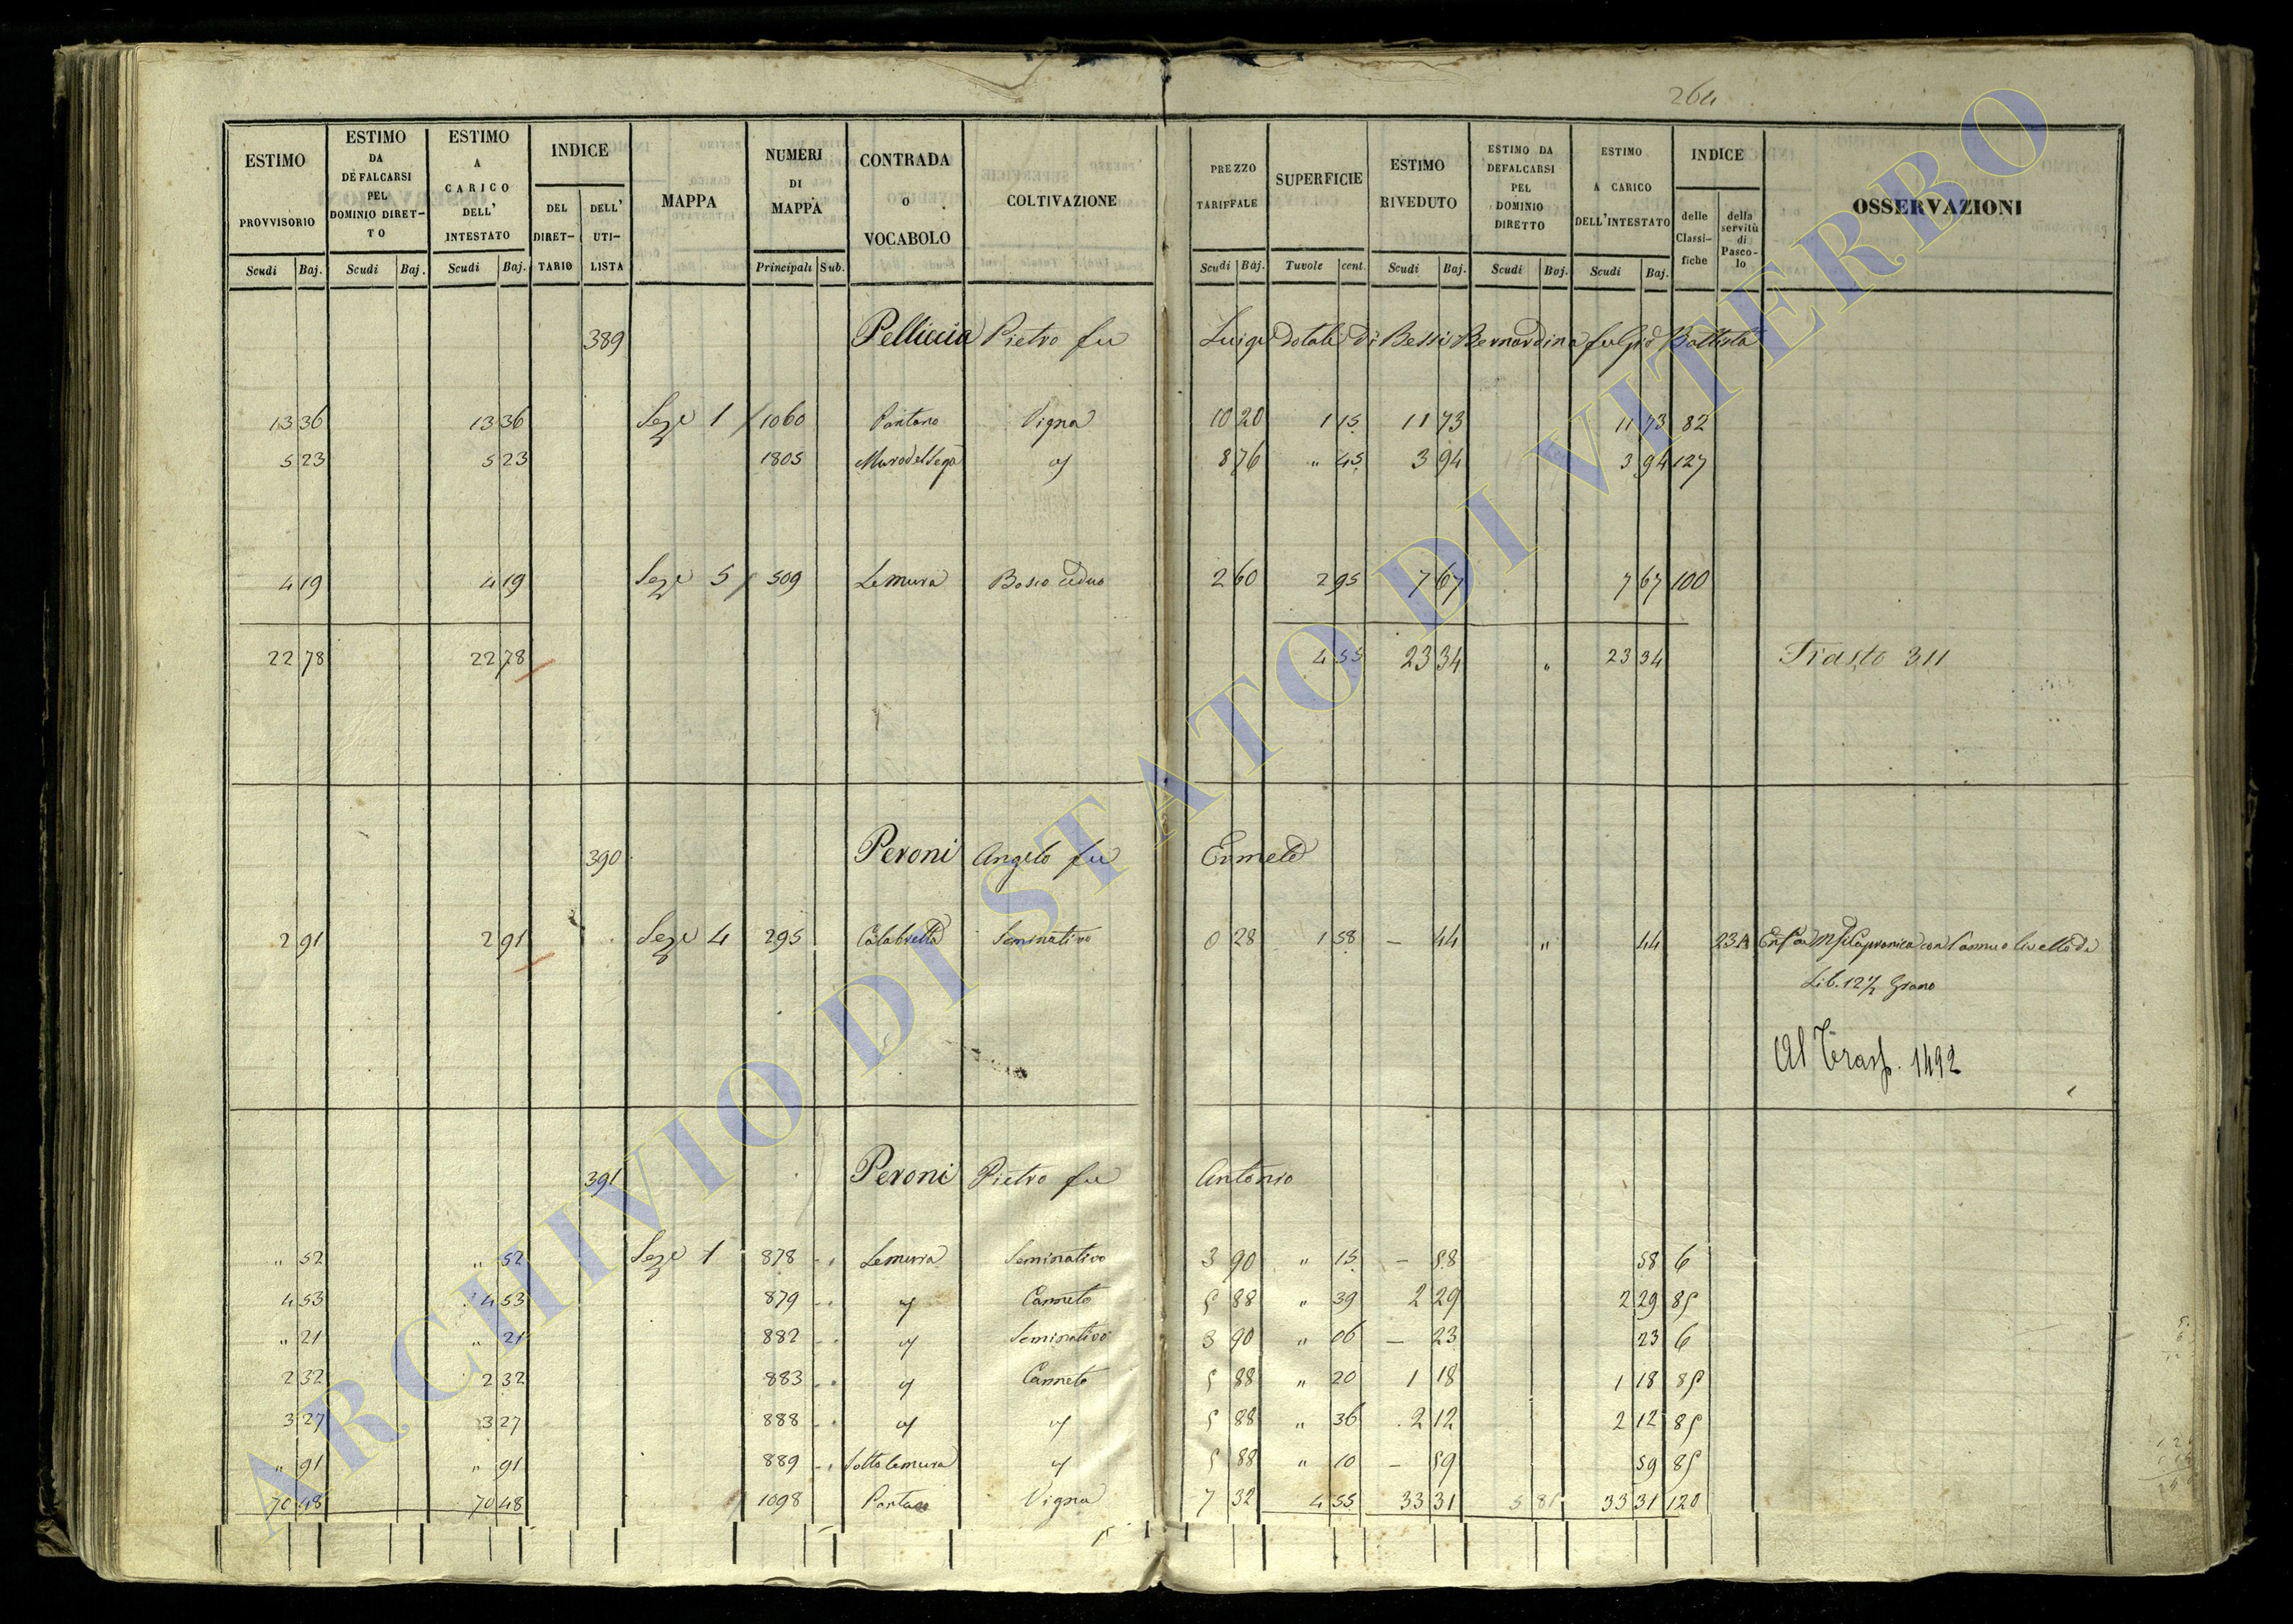 264
ESTIMO PROVVISORIO Scudi Baj. ESTIMO DA DEFALCARSI PEL DOMINIO DIRETTO Scudi Baj. ESTIMO A CARICO DELL' INTESTATO Scudi Baj. INDICE DEL DIRETTARIO DELL' UTILISTA MAPPA NUMERI DI MAPPA Principali Sub. CONTRADA O VOCABOLO COLTIVAZIONE PREZZO TARIFFALE Scudi Baj. SUPERFICIE Tuvole cent. ESTIMO RIVEDUTO Scudi Baj. ESTIMO DA DEFALCARSI PEL DOMINIO DIRETTO Scudi Boj. ESTIMO A CARICO DELL'INTESTATO Scudi Baj. INDICE delle Classifiche della servitù di Pascolo OSSERVAZIONI
389 Pelliccia Pietro fu Luigi dotali di Bessi Bernardina fu Gio Battista
13 36 13 36 Seze 1 1060 Pantano Vigna 10 20 1 15 11 73 11 73 82
5 23 5 23 1805 8 76 " 45 3 94 3 94 127
4 19 4 19 Seze 5 509 Lemura Bosco ceduo 2 60 2 95 7 67 7 67 100
22 78 22 78 4 55 23 34 " 23 34 Trasto 311
390 Peroni Angelo fu Ermete
2 91 2 91 Seze 4 295 Calabretta Seminativo 0 28 1 58 – 44 " 44 23A Capranica con l'annuo livello di
Lib. 12 1/2 Grano
Al Trasp. 1492
391 Peroni Pietro fu Antonio
" 52 " 52 Seze 1 878 Lemura Seminativo 3 90 " 15 – 58 58 6
4 53 4 53 879 " Canneto 5 88 " 39 2 29 2 29 85
" 21 " 21 882 " Seminativo 3 90 " 06 – 23 23 6
2 32 2 32 883 " Canneto 5 88 " 20 1 18 1 18 85
3 27 3 27 888 " " 5 88 " 36 2 12 2 12 85
" 91 " 91 889 Sotto lemura " 5 88 " 10 – 59 59 85
70 48 70 48 1098 Vigna 7 32 4 55 33 31 5 81 33 31 120
ARCHIVIO DI STATO DI VITERBO